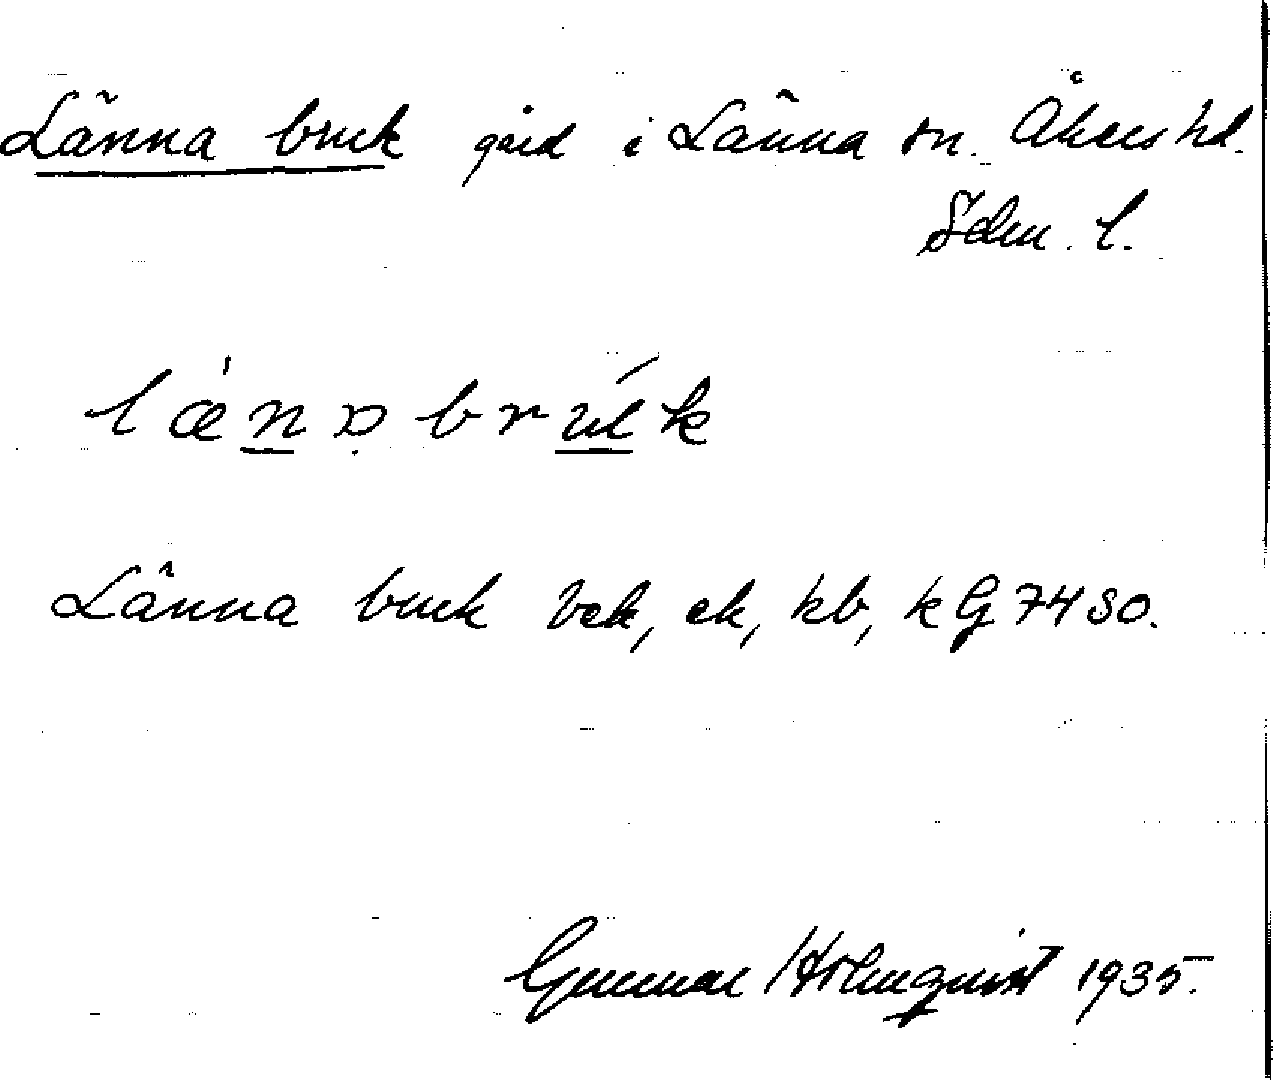 Länna bruk gård i Länna sn. Åkers hd.
Sdm. l.
lænabruk
Länna bruk bek, ek, kb, kG 74 SO.
Gunnar Holmquist 1935.